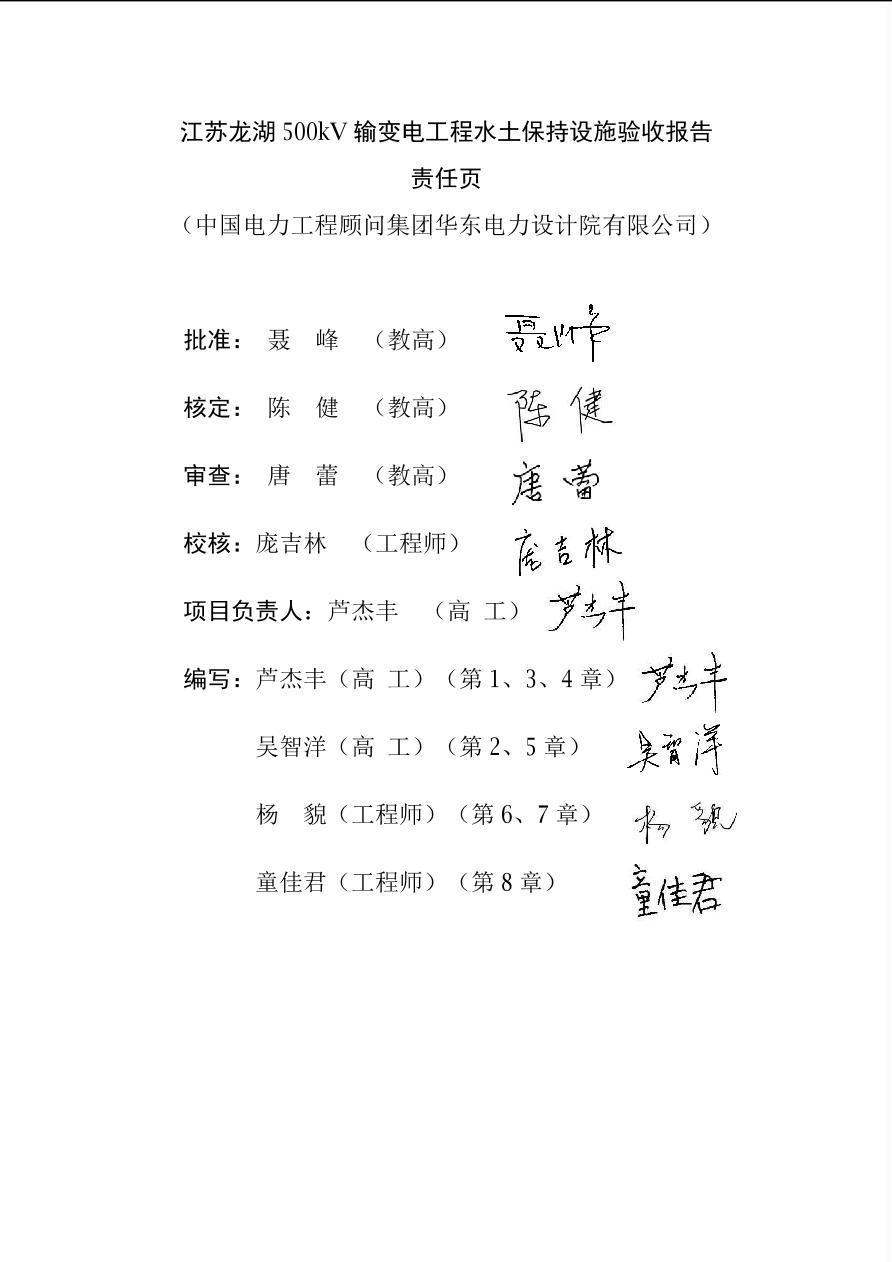 江苏龙湖 500kV 输变电工程水土保持设施验收报告
责任页
（中国电力工程顾问集团华东电力设计院有限公司）
批准： 聂 峰 （教高） 聂峰
核定： 陈 健 （教高） 陈健
审查： 唐 蕾 （教高） 唐蕾
校核：庞吉林 （工程师） 庞吉林
项目负责人：芦杰丰 （高 工） 芦杰丰
编写：芦杰丰（高 工）（第 1、3、4 章） 芦杰丰
吴智洋（高 工）（第 2、5 章） 吴智洋
杨 貌（工程师）（第 6、7 章） 杨貌
童佳君（工程师）（第 8 章） 童佳君